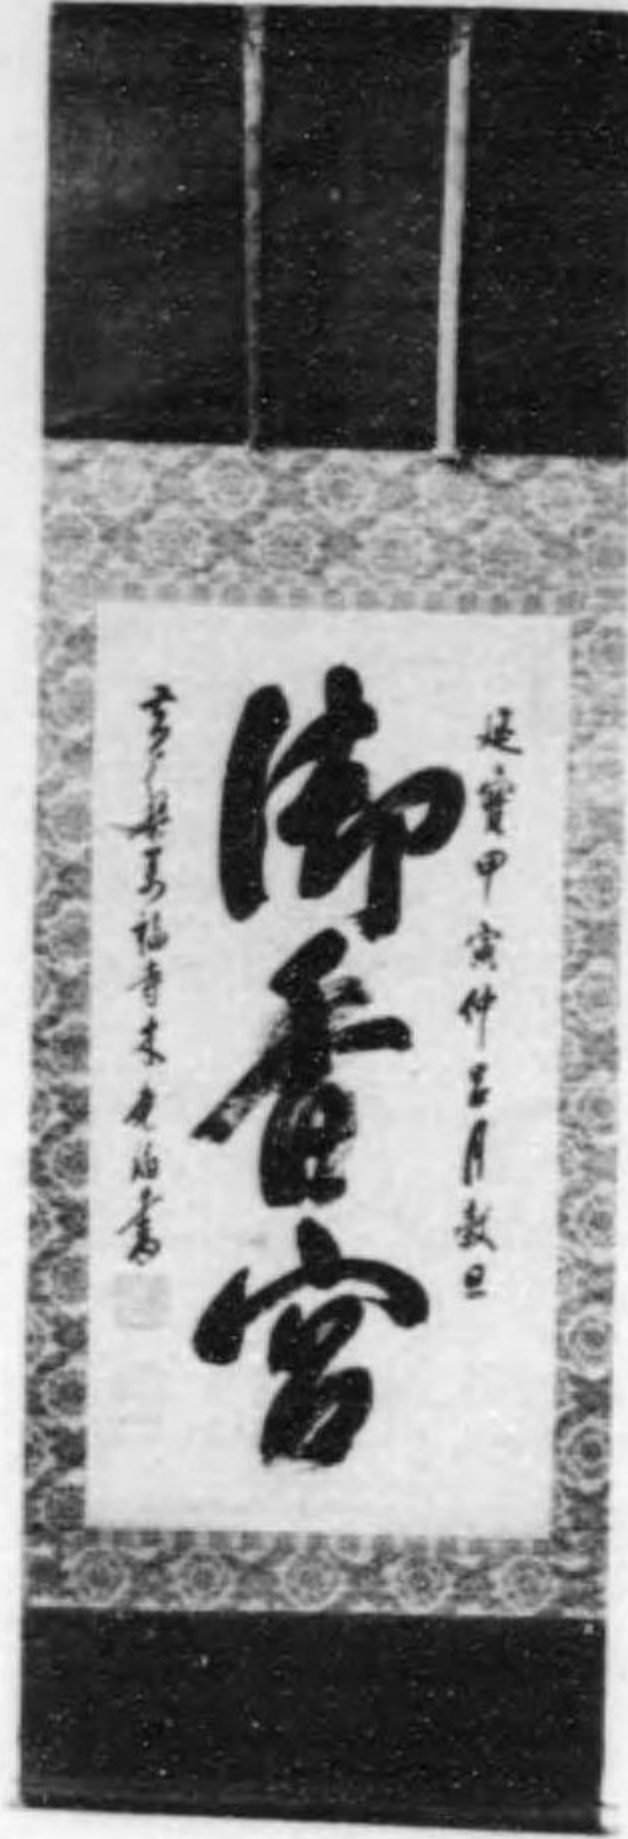 延寶甲寅仲呂月穀旦
御香宮
黄檗萬福寺木庵瑫書